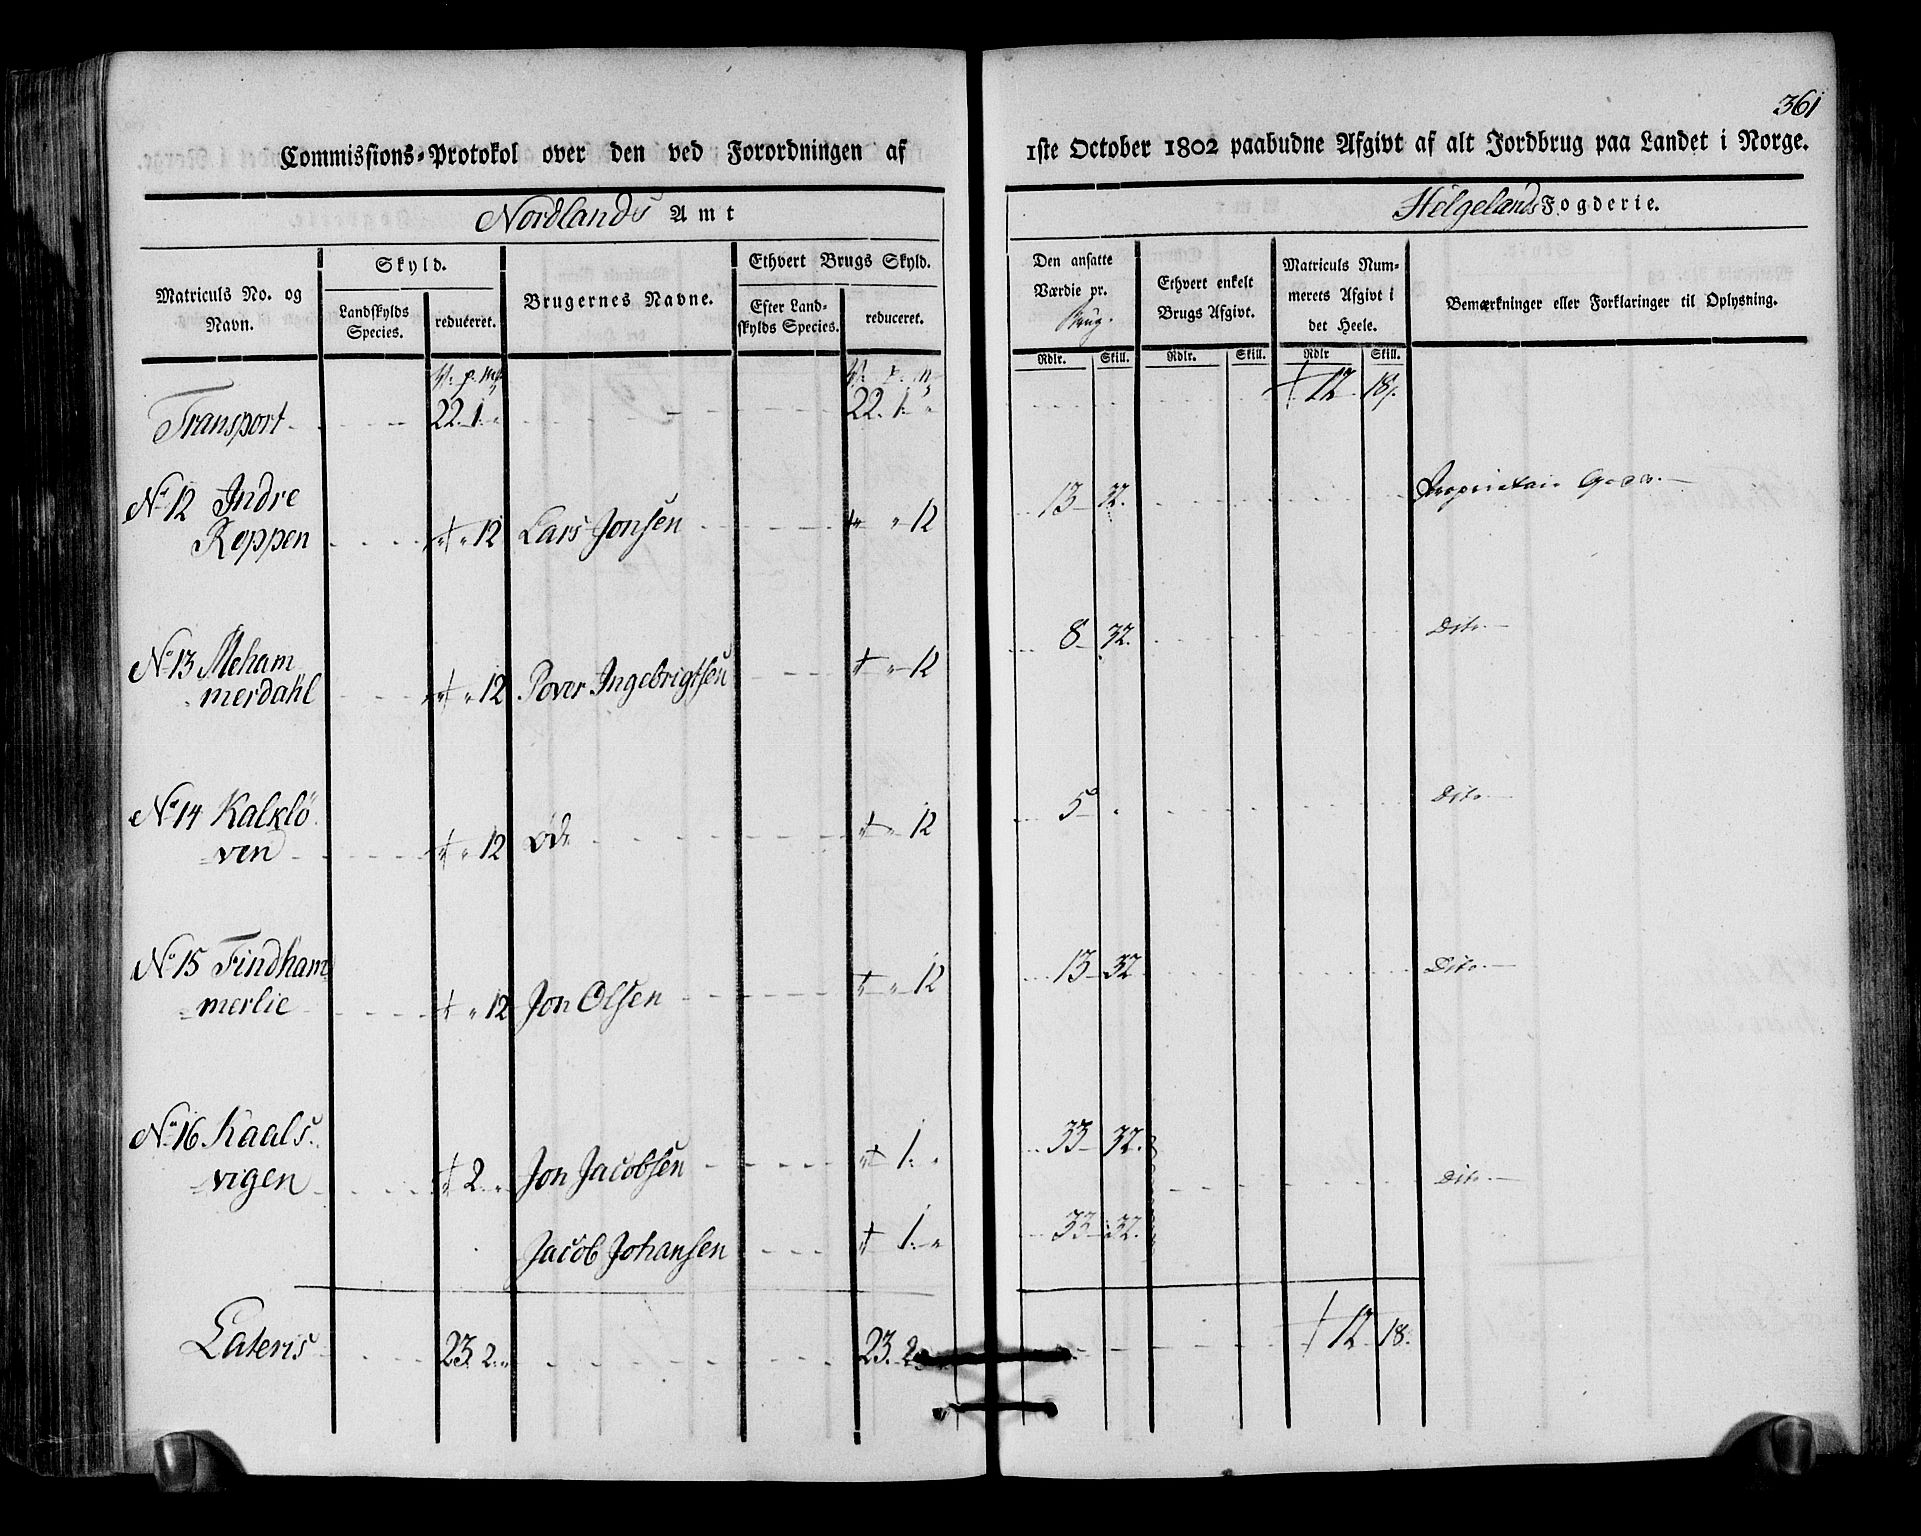 361
Commissions-Protokol over den ved Forordningen af 1ste October 1802 paabudne Afgivt af alt Jordbrug paa Landet i Norge.
Nordlands Amt
Helgelands Fogderie.
Matriculs No. og Navn.
Skyld.
Landskylds Species.
reduceret.
Brugernes Navne.
Ethvert Brugs Skyld.
Efter Landskylds Species.
reduceret.
Den ansatte Værdie pr. Brug.
Ethvert enkelt Brugs Afgivt.
Matriculs Nummerets Afgivt i det Heele.
Bemærkninger eller Forklaringer til Oplysning.
Rdlr. Skill. Rdlr. Skill. Rdlr Skill.
Transport 22. 1. 22. 1. 12 18
No 12 Indre
Roppen 12 Lars Jonsen 12 13 32. Proprietair Gods.
No 13 Meham
merdahl 12 Pover Ingebrigtsen 12 8 32. Dito.
No 14 Kalklö
ven 12 Øde 12 5 Dito
No 15 Findham
merlie 12 Jon Olsen 12 13 32 Dito.
No 16 Kaals
vigen 2. Jon Jacobsen 1. 33 32. Dito.
Jacob Johansen 1. 33 32.
Lateris 23. 2. 23. 2 12 18.